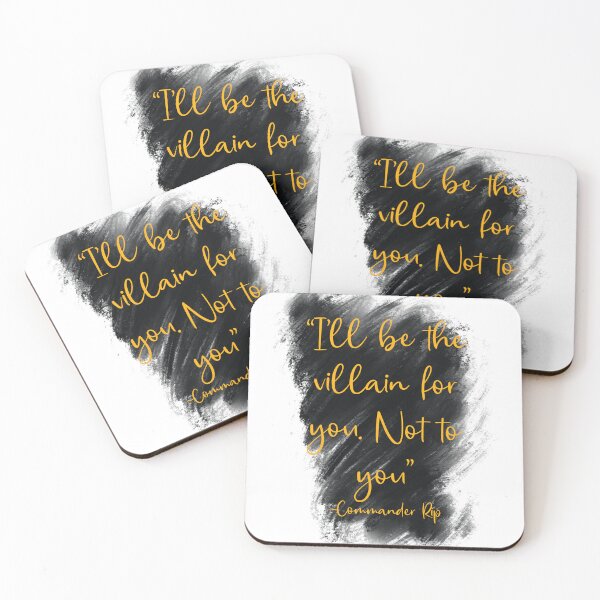 “I'll be the
villain for
to
“I'll be the
villain for
you. Not to
“I'll be the
villain for
you. Not to
you”
“I'll be the
villain for
you. Not to
you”
-Commander Rip